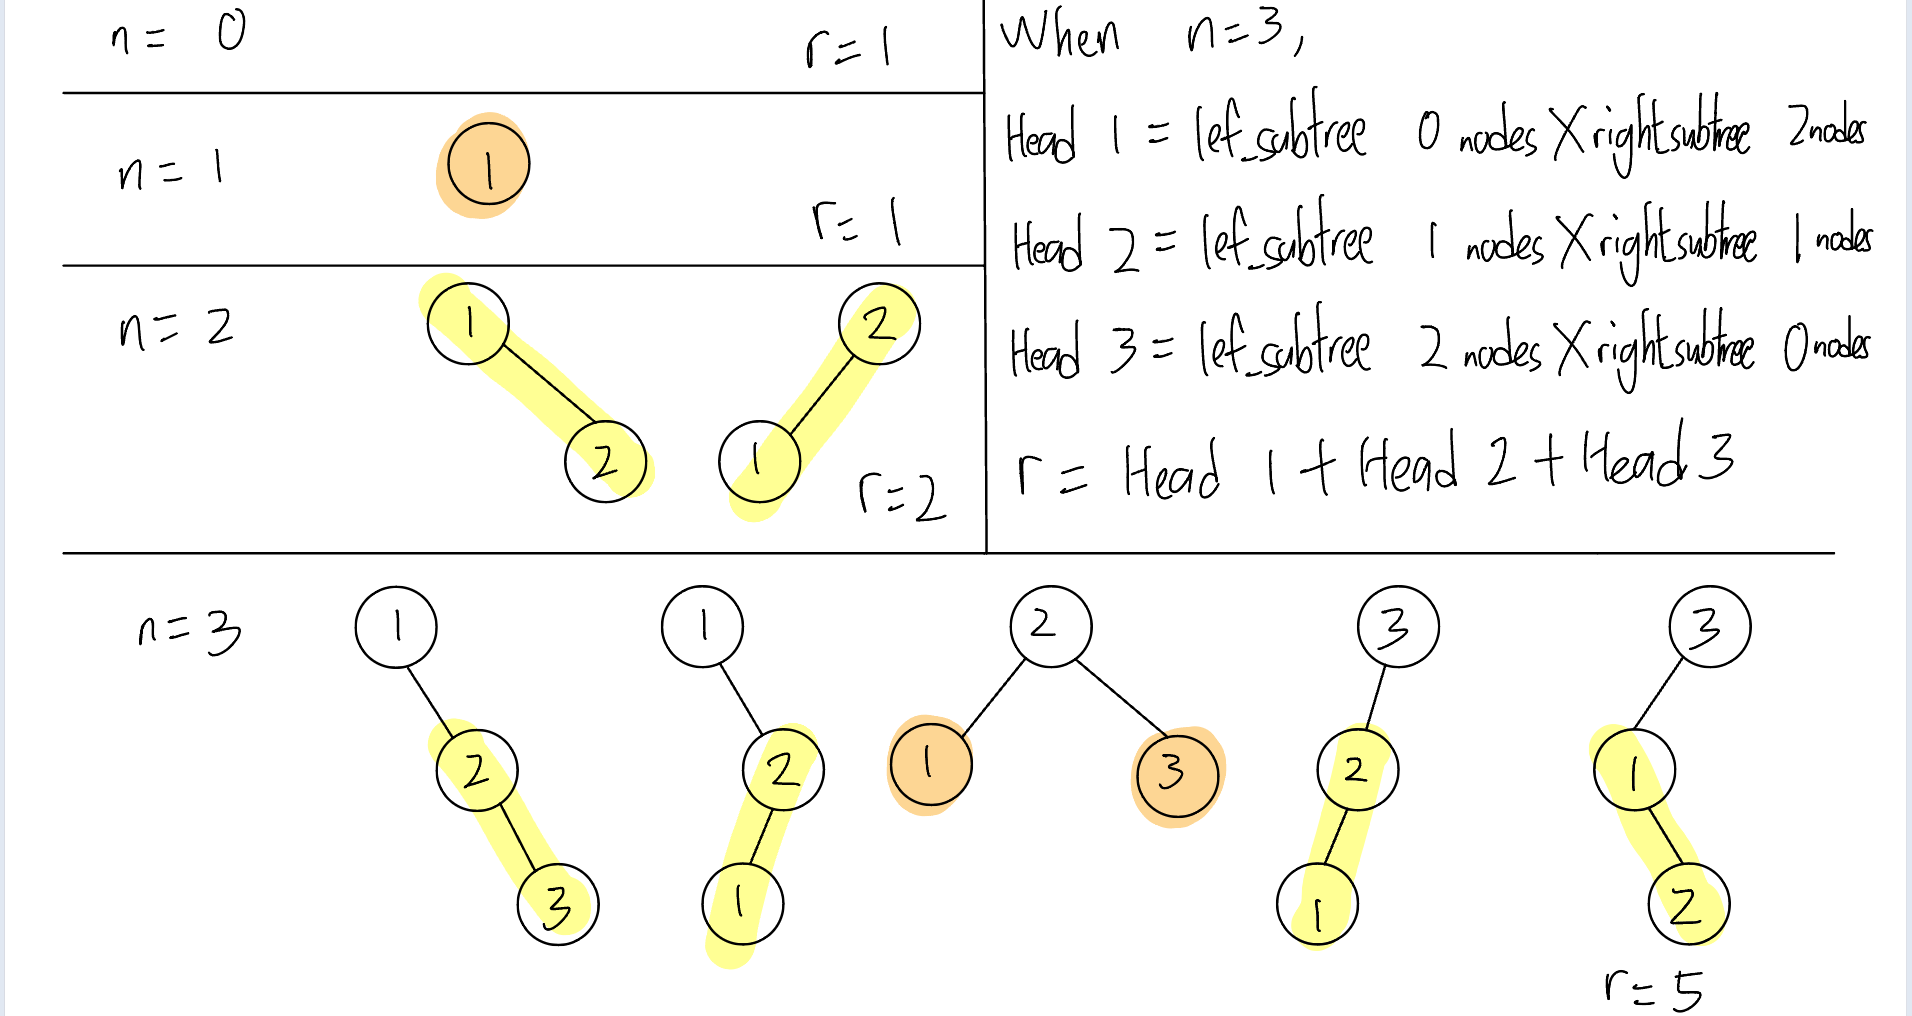 n = 0
r = 1
n = 1
1
r = 1
n = 2
1
2
2
1
r = 2
When n = 3,
Head 1 = lef_subtree 0 nodes X right subtree 2 nodes
Head 2 = lef_subtree 1 nodes X right subtree 1 nodes
Head 3 = lef_subtree 2 nodes X right subtree 0 nodes
r = Head 1 + Head 2 + Head 3
n = 3
1
2
3
1
2
1
2
1
3
3
2
1
3
1
2
r = 5